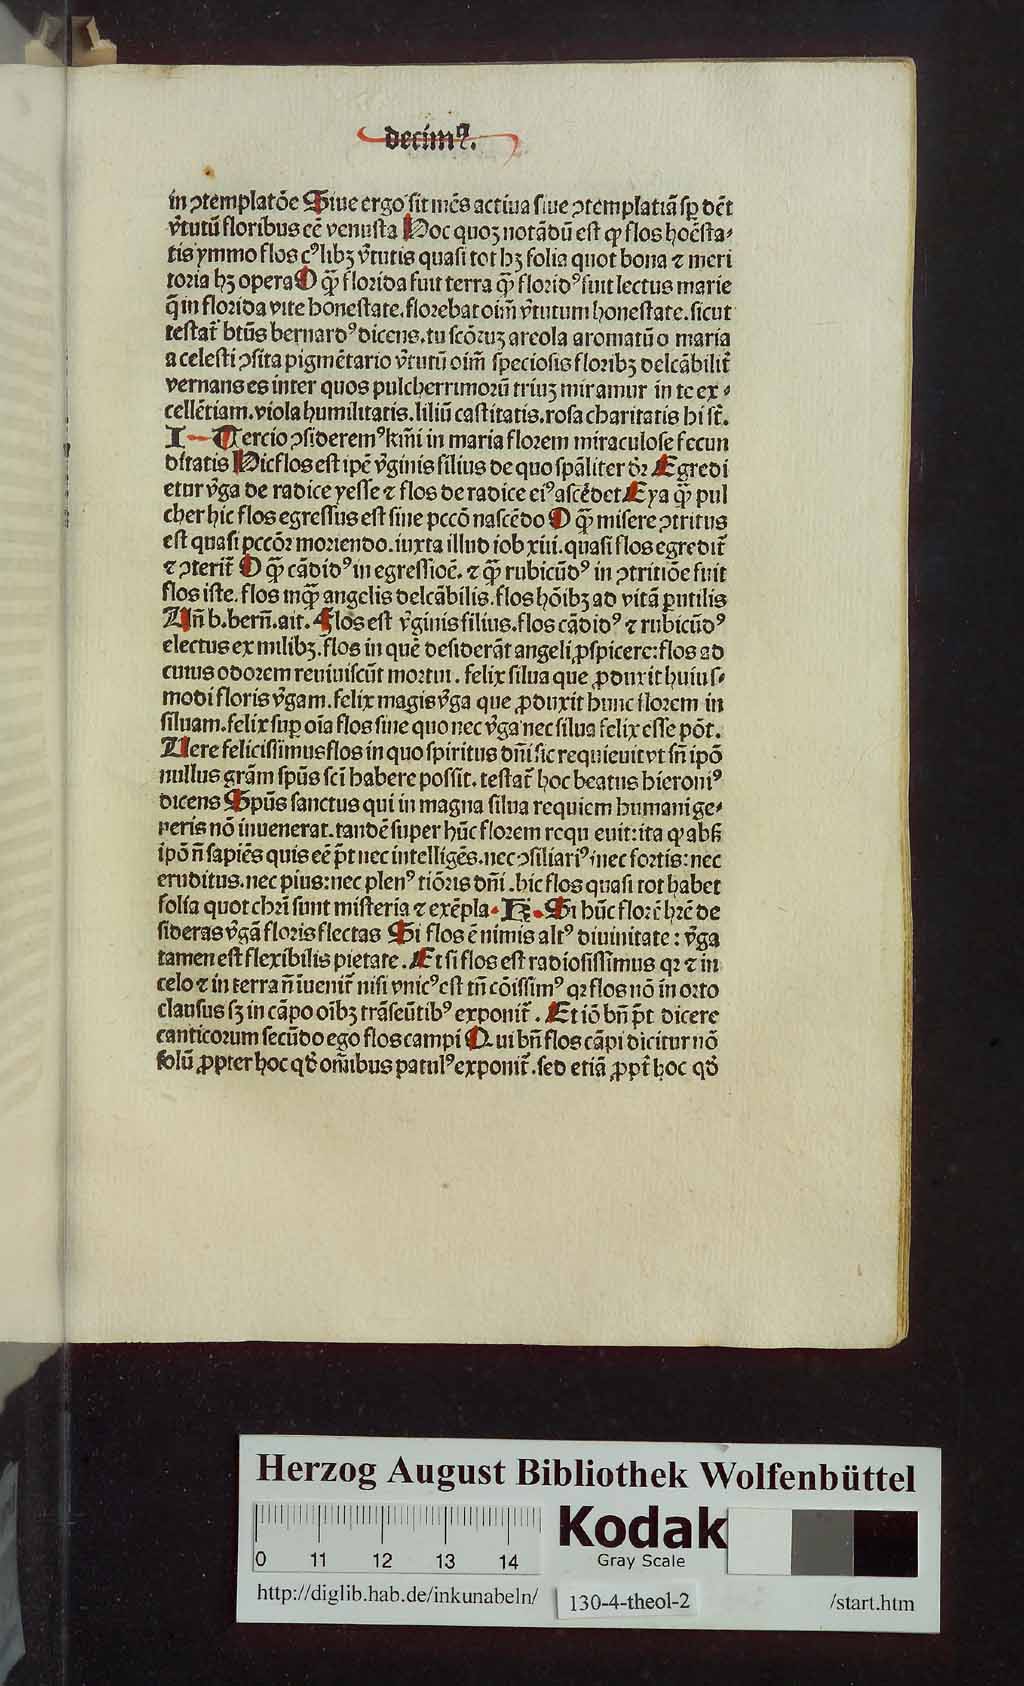 decimꝰ.
in ↄtemplatōe Siue ergo sit mēs actiua siue ↄtemplatiā sp̄ dēt
v̄tutū floribus eē venusta Hoc quoꝫ notādū est ꝙ flos hoēsta⸗
tis ymmo flos cꝰlibꝫ v̄tutis quasi tot hꝫ folia quot bona ⁊ meri
toria hꝫ opera O q̄ꝫ florida fuit terra q̄ꝫ floridꝰ fuit lectus marie
q̄ in florida vite honestate. florebat oim̄ v̄tutum honestate. sicut
testat᷑ btūs bernardꝰ dicens. tu scōꝝ areola aromatū o maria
a celesti ↄsita pigmētario v̄tutū oim̄ speciosis floribꝫ delcābilit᷑
vernans es inter quos pulcherrimorū triuꝫ miramur in te ex⸗
cellētiam. viola humilitatis. liliū castitatis. rosa charitatis hi st᷑.
I Tercio ↄsideremꝰ km̄i in maria florem miraculose fecun
ditatis Hic flos est ipē v̄ginis filius de quo spāliter dꝛ Egredi
etur v̄ga de radice yesse ⁊ flos de radice eiꝰ ascēdet Eya q̄ꝫ pul
cher hic flos egressus est sine pccō nascēdo O q̄ꝫ misere ↄtritus
est quasi pccōꝛ moriendo. iuxta illud iob xiii. quasi flos egredit᷑
⁊ ↄterit᷑ O q̄ꝫ cādidꝰ in egressiōe. ⁊ q̄ꝫ rubicūdꝰ in ↄtritiōe fuit
flos iste. flos inq̄ꝫ angelis delcābilis. flos hōibꝫ ad vitā ꝑutilis
Vn̄ b. bern̄. ait. Flos est v̄ginis filius. flos cādidꝰ ⁊ rubicūdꝰ
electus ex milibꝫ. flos in quē desiderāt angeli ꝓspicere: flos ad
cuius odorem reuiuiscūt mortui. felix silua que ꝓduxit huius⸗
modi floris v̄gam. felix magis v̄ga que ꝓduxit hunc florem in
siluam. felix suꝑ oīa flos sine quo nec v̄ga nec silua felix esse pōt.
Vere felicissimus flos in quo spiritus dn̄i sic requieuit vt sn̄ ipō
nullus grām spūs sci᷑ habere possit. testat᷑ hoc beatus hieronīꝰ
dicens Spūs sanctus qui in magna silua requiem humani ge⸗
neris nō inuenerat. tandē super hūc florem requ euit: ita ꝙ absqꝫ
ipō n̄ sapiēs quis eē p̄t nec intelligēs. nec ↄsiliariꝰ: nec fortis: nec
eruditus. nec pius: nec plenꝰ tiōris dn̄i. hic flos quasi tot habet
folia quot chr̄i sunt misteria ⁊ exēpla. K. Si hūc florē hr̄e de
sideras v̄gā floris flectas Si flos ē nimis altꝰ diuinitate: v̄ga
tamen est flexibilis pietate. Et si flos est radiosissimus qꝛ ⁊ in
celo ⁊ in terra n̄ iuenit᷑ nisi vnicꝰ est tn̄ cōissimꝰ qꝛ flos nō in orto
clausus sꝫ in cāpo oībꝫ trāseūtibꝰ exponit᷑. Et iō bn̄ p̄t dicere
canticorum secūdo ego flos campi Qui bn̄ flos cāpi dicitur nō
solū ꝓpter hoc qđ om̄ibus patulꝰ exponit᷑. sed etiā ꝓpt᷑ hoc qđ
Herzog August Bibliothek Wolfenbüttel
0 11 12 13 14
Kodak
Gray Scale
http://diglib.hab.de/inkunabeln/ 130-4-theol-2 /start.htm